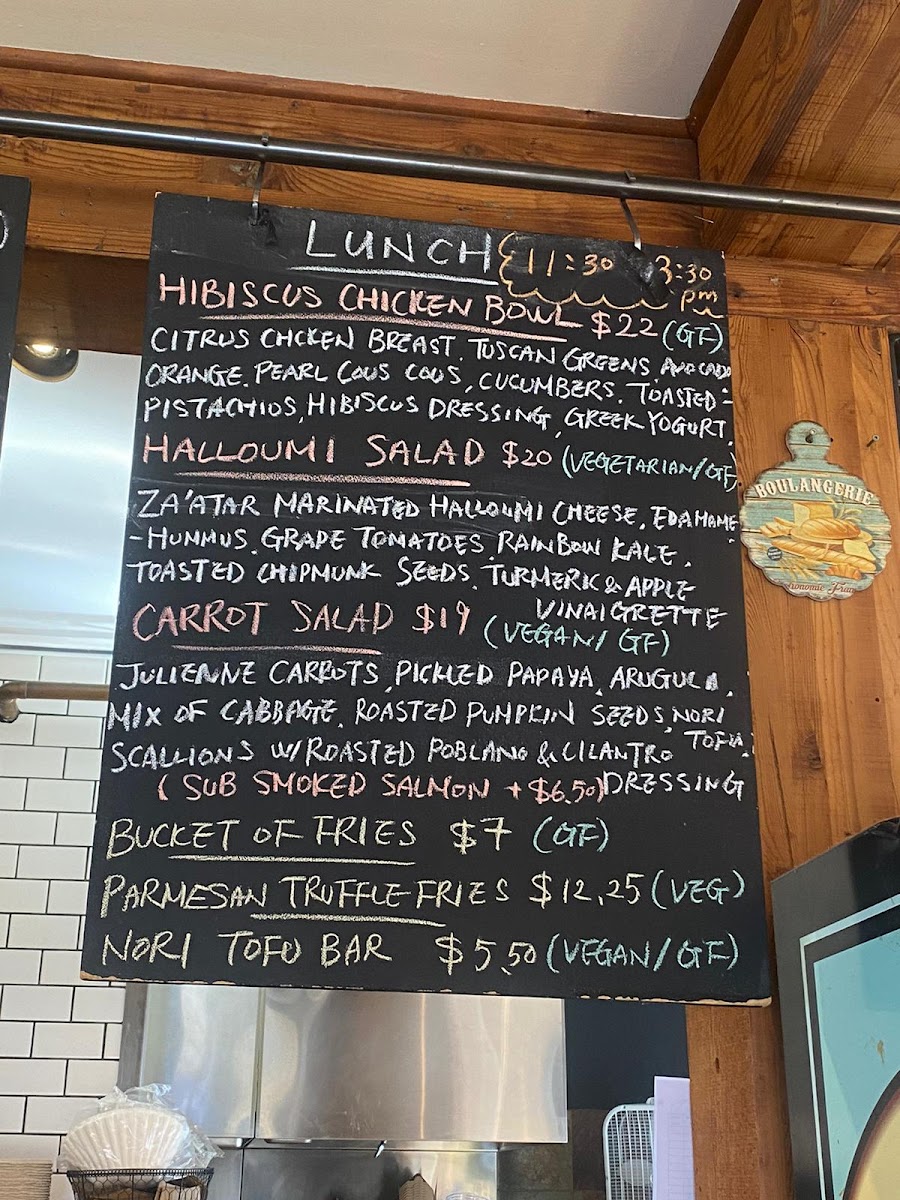 LUNCH 11:30 3:30 pm
HIBISCUS CHICKEN BOWL $22 (GF)
CITRUS CHICKEN BREAST, TUSCAN GREENS AVOCADO
ORANGE, PEARL COUS COUS, CUCUMBERS, TOASTED-
PISTACHIOS, HIBISCUS DRESSING, GREEK YOGURT,
HALLOUMI SALAD $20 (VEGETARIAN/GF)
ZA'ATAR MARINATED HALLOUMI CHEESE, EDAMAME
-HUMMUS, GRAPE TOMATOES, RAINBOW KALE,
TOASTED CHIPMUNK SEEDS, TURMERIC & APPLE
VINAIGRETTE
CARROT SALAD $19 (VEGAN/GF)
JULIENNE CARROTS, PICKLED PAPAYA, ARUGULA,
MIX OF CABBAGE, ROASTED PUMPKIN SEEDS, NORI
TOFU,
SCALLIONS W/ROASTED POBLANO & CILANTRO
DRESSING
(SUB SMOKED SALMON + $6.50)
BUCKET OF FRIES $7 (GF)
PARMESAN TRUFFLE FRIES $12.25 (VEG)
NORI TOFU BAR $5.50 (VEGAN/GF)
BOULANGERIE